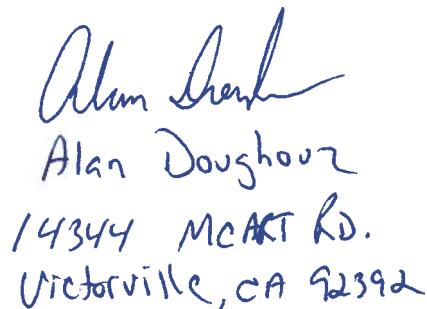 Alan
Alan Doughouz
14344 McART RD.
Victorville, CA 92392